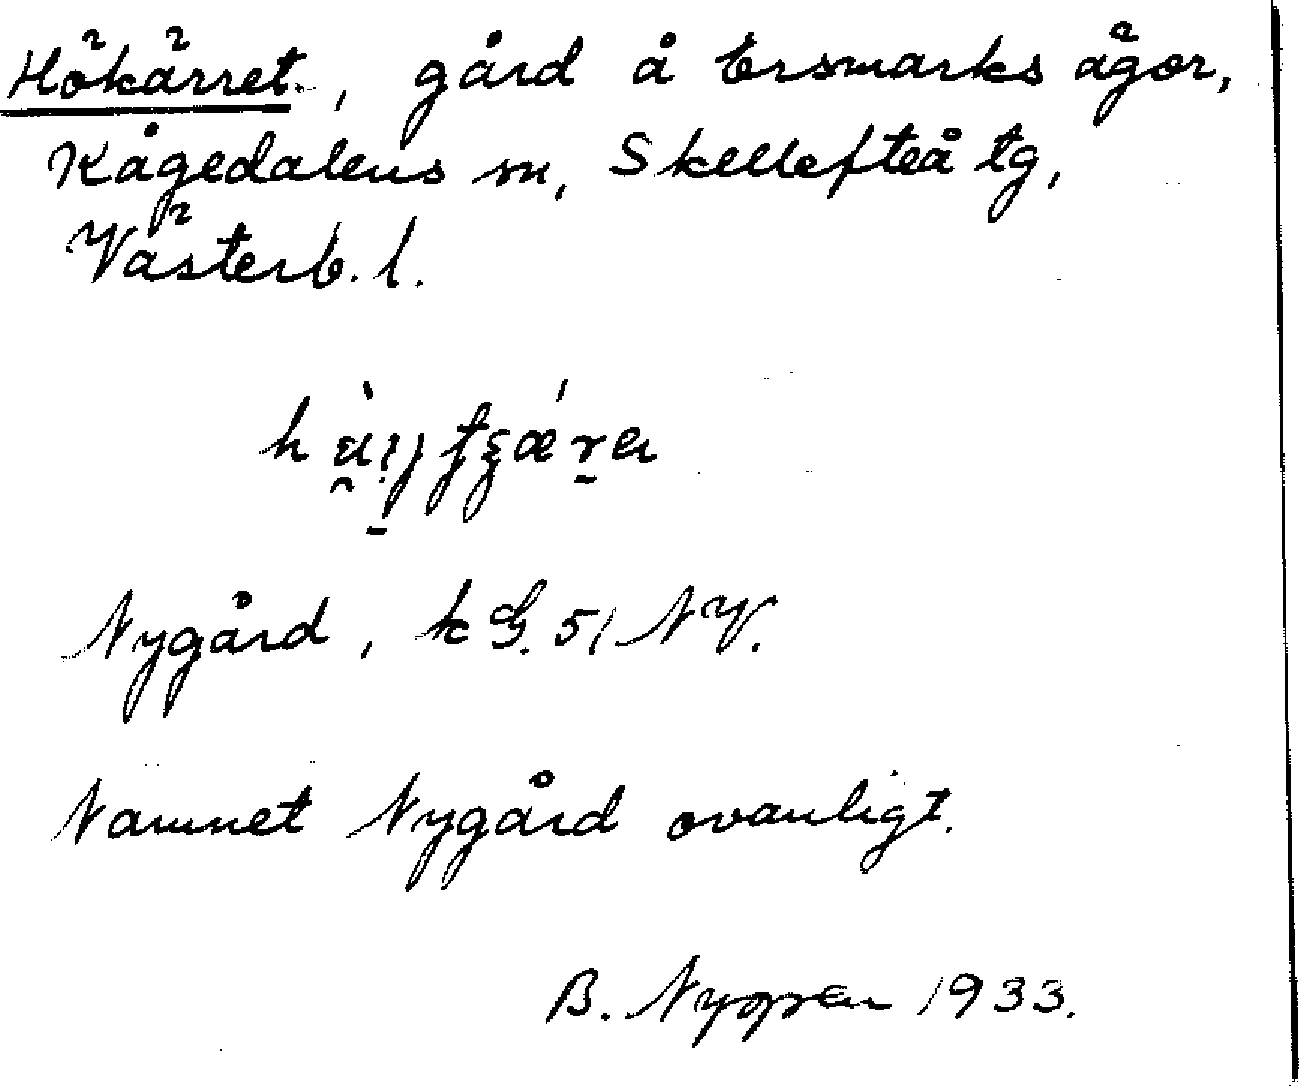 Hökärret, gård å Ersmarks ägor,
Kågedalens sn, Skellefteå tg,
Västerb. l.
Nygård, k G. 51 NV.
Namnet Nygård ovanligt.
B. Nygren 1933.